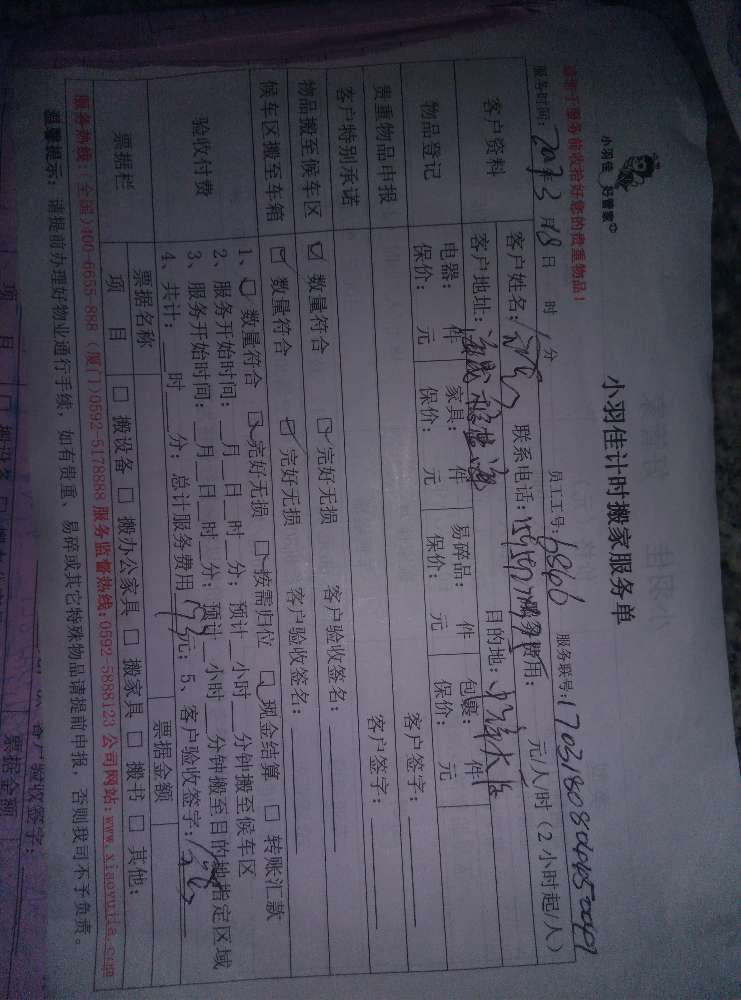 小羽佳 好管家©
小羽佳计时搬家服务单
请于服务前收拾好您的贵重物品!
服务时间: 2017年3月18日 时 分 员工工号: 6866 服务联号:
客户资料
客户姓名: 联系电话: 服务费用: 元/人/时(2小时起/人)
客户地址: 目的地:
物品登记
电器: 件 家具: 件 易碎品: 件 包裹: 件
保价: 元 保价: 元 保价: 元 保价: 元
贵重物品申报 客户签字:
客户特别承诺 客户签字:
物品搬至候车区 ☑ 数量符合 ☑ 完好无损 客户验收签名:
候车区搬至车箱 ☑ 数量符合 ☑ 完好无损 客户验收签名:
验收付费
1、☑ 数量符合 ☑ 完好无损 ☑ 按需归位 ☑ 现金结算 □ 转账汇款
2、服务开始时间: 月 日 时 分; 预计 小时 分钟搬至候车区
3、服务开始时间: 月 日 时 分; 预计 小时 分钟搬至目的地指定区域
4、共计: 时 分; 总计服务费用 元; 5、客户验收签字:
票据栏
票据名称 票据金额
项 目 □ 搬设备 □ 搬办公家具 □ 搬家具 □ 搬书 □ 其他:
服务热线: 全国)400-6655-888 (厦门)0592-5178888 服务监督热线:0592-5888123 公司网站:www.xiaoyujia.com
温馨提示: 请提前办理好物业通行手续, 如有贵重、易碎或其它特殊物品请提前申报, 否则我司不予负责。
客户验收签字:
票据金额
项 目 □ 搬设备 □